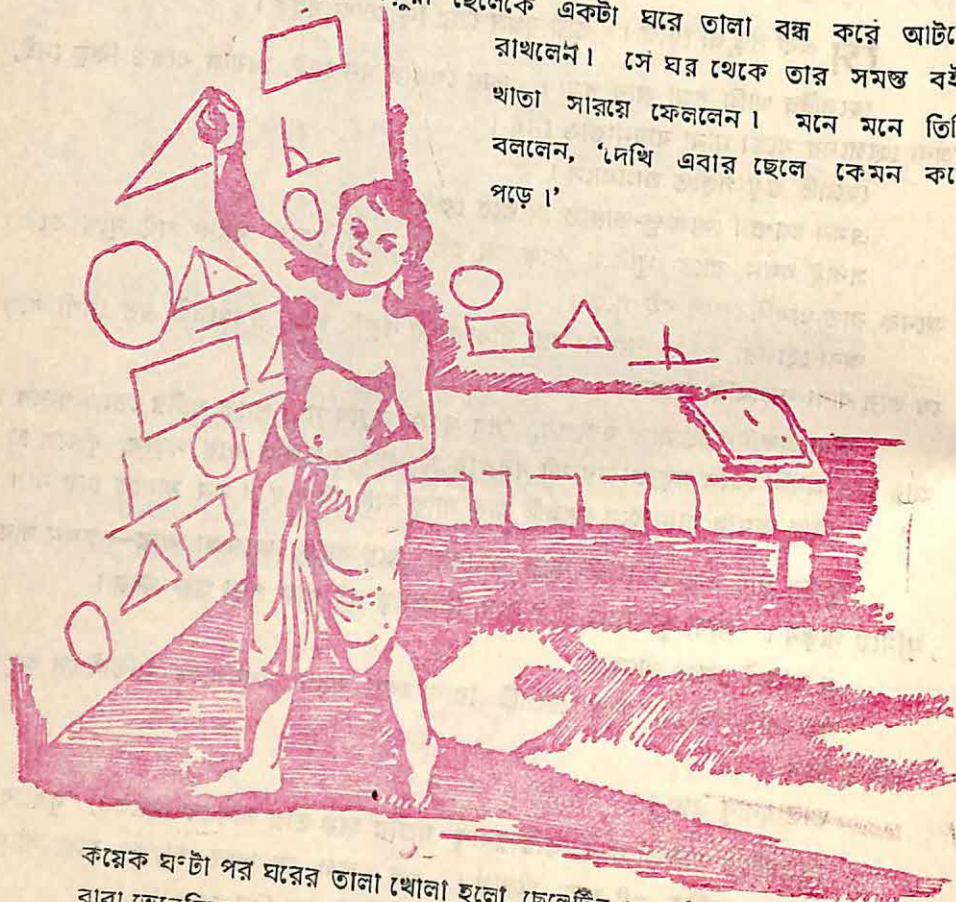 ছেলেকে একটা ঘরে তালা বন্ধ করে আটকে
রাখলেন। সে ঘর থেকে তার সমস্ত বই
খাতা সারয়ে ফেললেন। মনে মনে তিনি
বললেন, ‘দেখি এবার ছেলে কেমন করে
পড়ে।’
কয়েক ঘণ্টা পর ঘরের তালা খোলা হলো